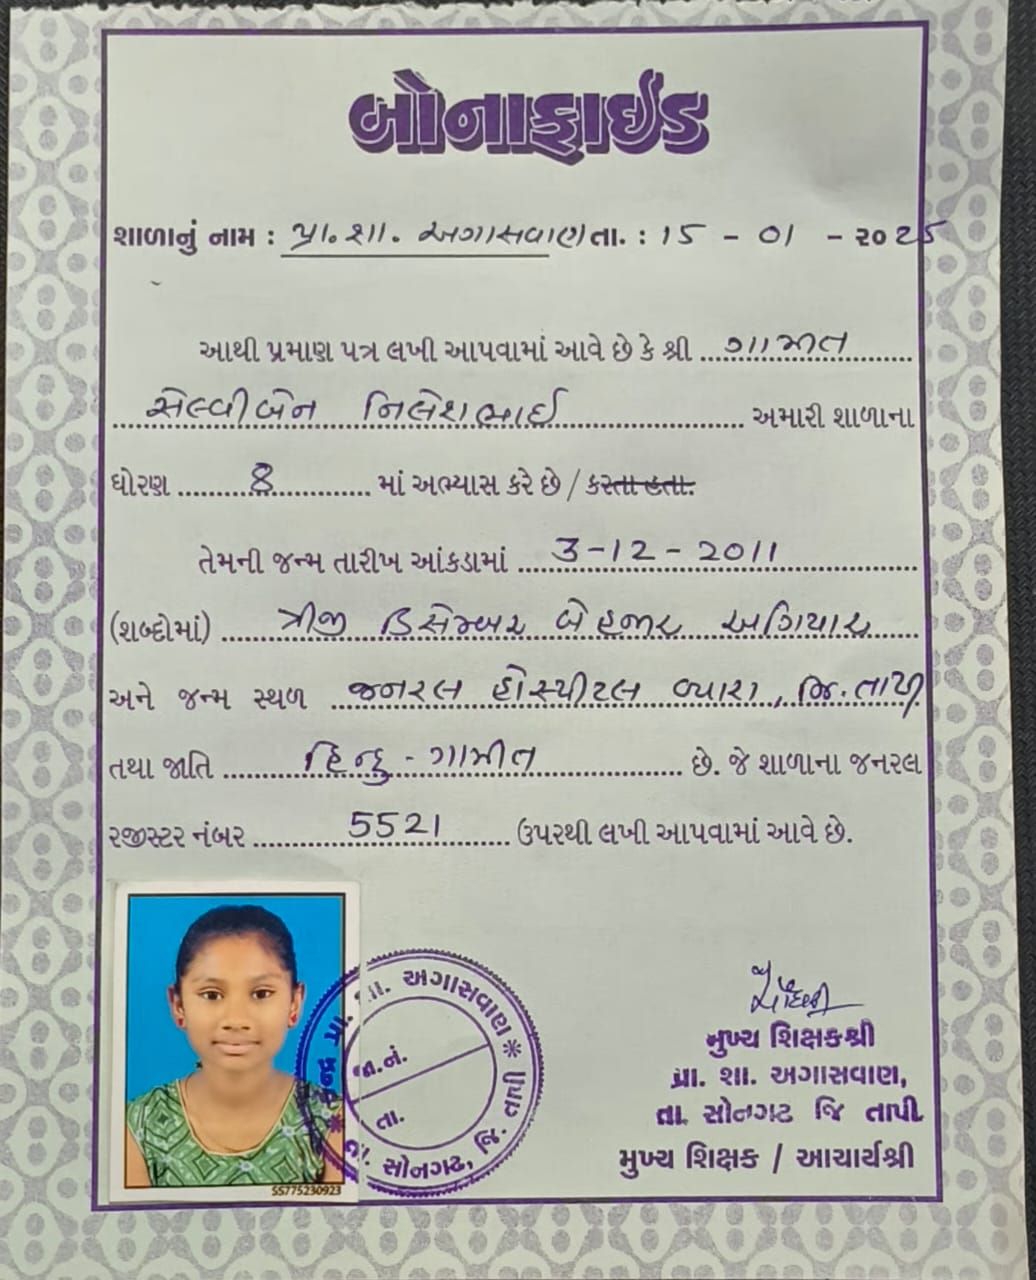 બોનાફાઈડ
શાળાનું નામ : પ્રા. શા. અગાસવાણ તા. : 15 - 01 - ૨૦25
આથી પ્રમાણ પત્ર લખી આપવામાં આવે છે કે શ્રી ગામીત
સેલ્વીબેન નિલેશભાઈ અમારી શાળાના
ધોરણ 8 માં અભ્યાસ કરે છે / કરતા હતા.
તેમની જન્મ તારીખ આંકડામાં 3-12-2011
(શબ્દોમાં) ત્રીજી ડિસેમ્બર બે હજાર અગિયાર
અને જન્મ સ્થળ જનરલ હોસ્પીટલ વ્યારા, જિ. તાપી
તથા જાતિ હિન્દુ - ગામીત છે. જે શાળાના જનરલ
રજીસ્ટર નંબર 5521 ઉપરથી લખી આપવામાં આવે છે.
શા. અગાસવાણ * તા. સોનગઢ, જિ. તાપી
જા.નં.
તા.
SS775230923
મુખ્ય શિક્ષકશ્રી
પ્રા. શા. અગાસવાણ,
તા. સોનગઢ જિ તાપી
મુખ્ય શિક્ષક / આચાર્યશ્રી